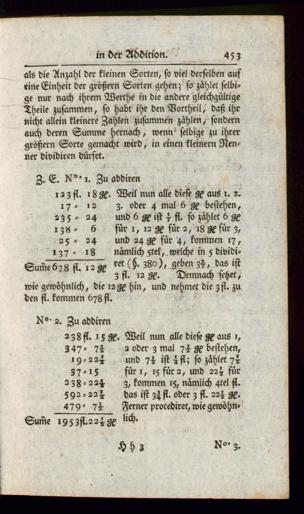 in der Addition. 453
als die Anzahl der kleinen Sorten, so viel derselben auf
eine Einheit der größern Sorten gehen; so zählet selbi-
ge nur nach ihrem Werthe in die andere gleichgültige
Theile zusammen, so habt ihr den Vortheil, daß ihr
nicht allein kleinere Zahlen zusammen zählen, sondern
auch deren Summe hernach, wenn selbige zu ihrer
größern Sorte gemacht wird, in einen kleinern Nen-
ner dividiren dürfet.
Z. E. No. 1. Zu addiren
123 fl. 18 gr. Weil nun alle diese gr aus 1. 2.
17 - 12 3. oder 4 mal 6 gr bestehen,
235 - 24 und 6 gr ist ⅕ fl. so zählet 6 gr
138 - 6 für 1, 12 gr für 2, 18 gr für 3,
25 - 24 und 24 gr für 4, kommen 17,
137 - 18 nämlich 5tel, welche in 5 dividi-
Sum̄e 678 fl. 12 gr ret (§. 380.), geben 3⅖, das ist
3 fl. 12 gr. Demnach setzet,
wie gewöhnlich, die 12 gr hin, und nehmet die 3 fl. zu
den fl. kommen 678 fl.
No. 2. Zu addiren
238 fl. 15 gr. Weil nun alle diese gr aus 1,
347 - 7½ 2 oder 3 mal 7½ gr bestehen,
19 - 22½ und 7½ ist ¼ fl; so zählet 7½
37 - 15 für 1, 15 für 2, und 22½ für
238 - 22½ 3, kommen 15, nämlich 4tel fl.
592 - 22½ das ist 3¾ fl. oder 3 fl. 22½ gr.
479 - 7½ Ferner procediret, wie gewöhn-
Sum̄e 1953 fl. 22½ gr lich.
H h 3 No. 3.